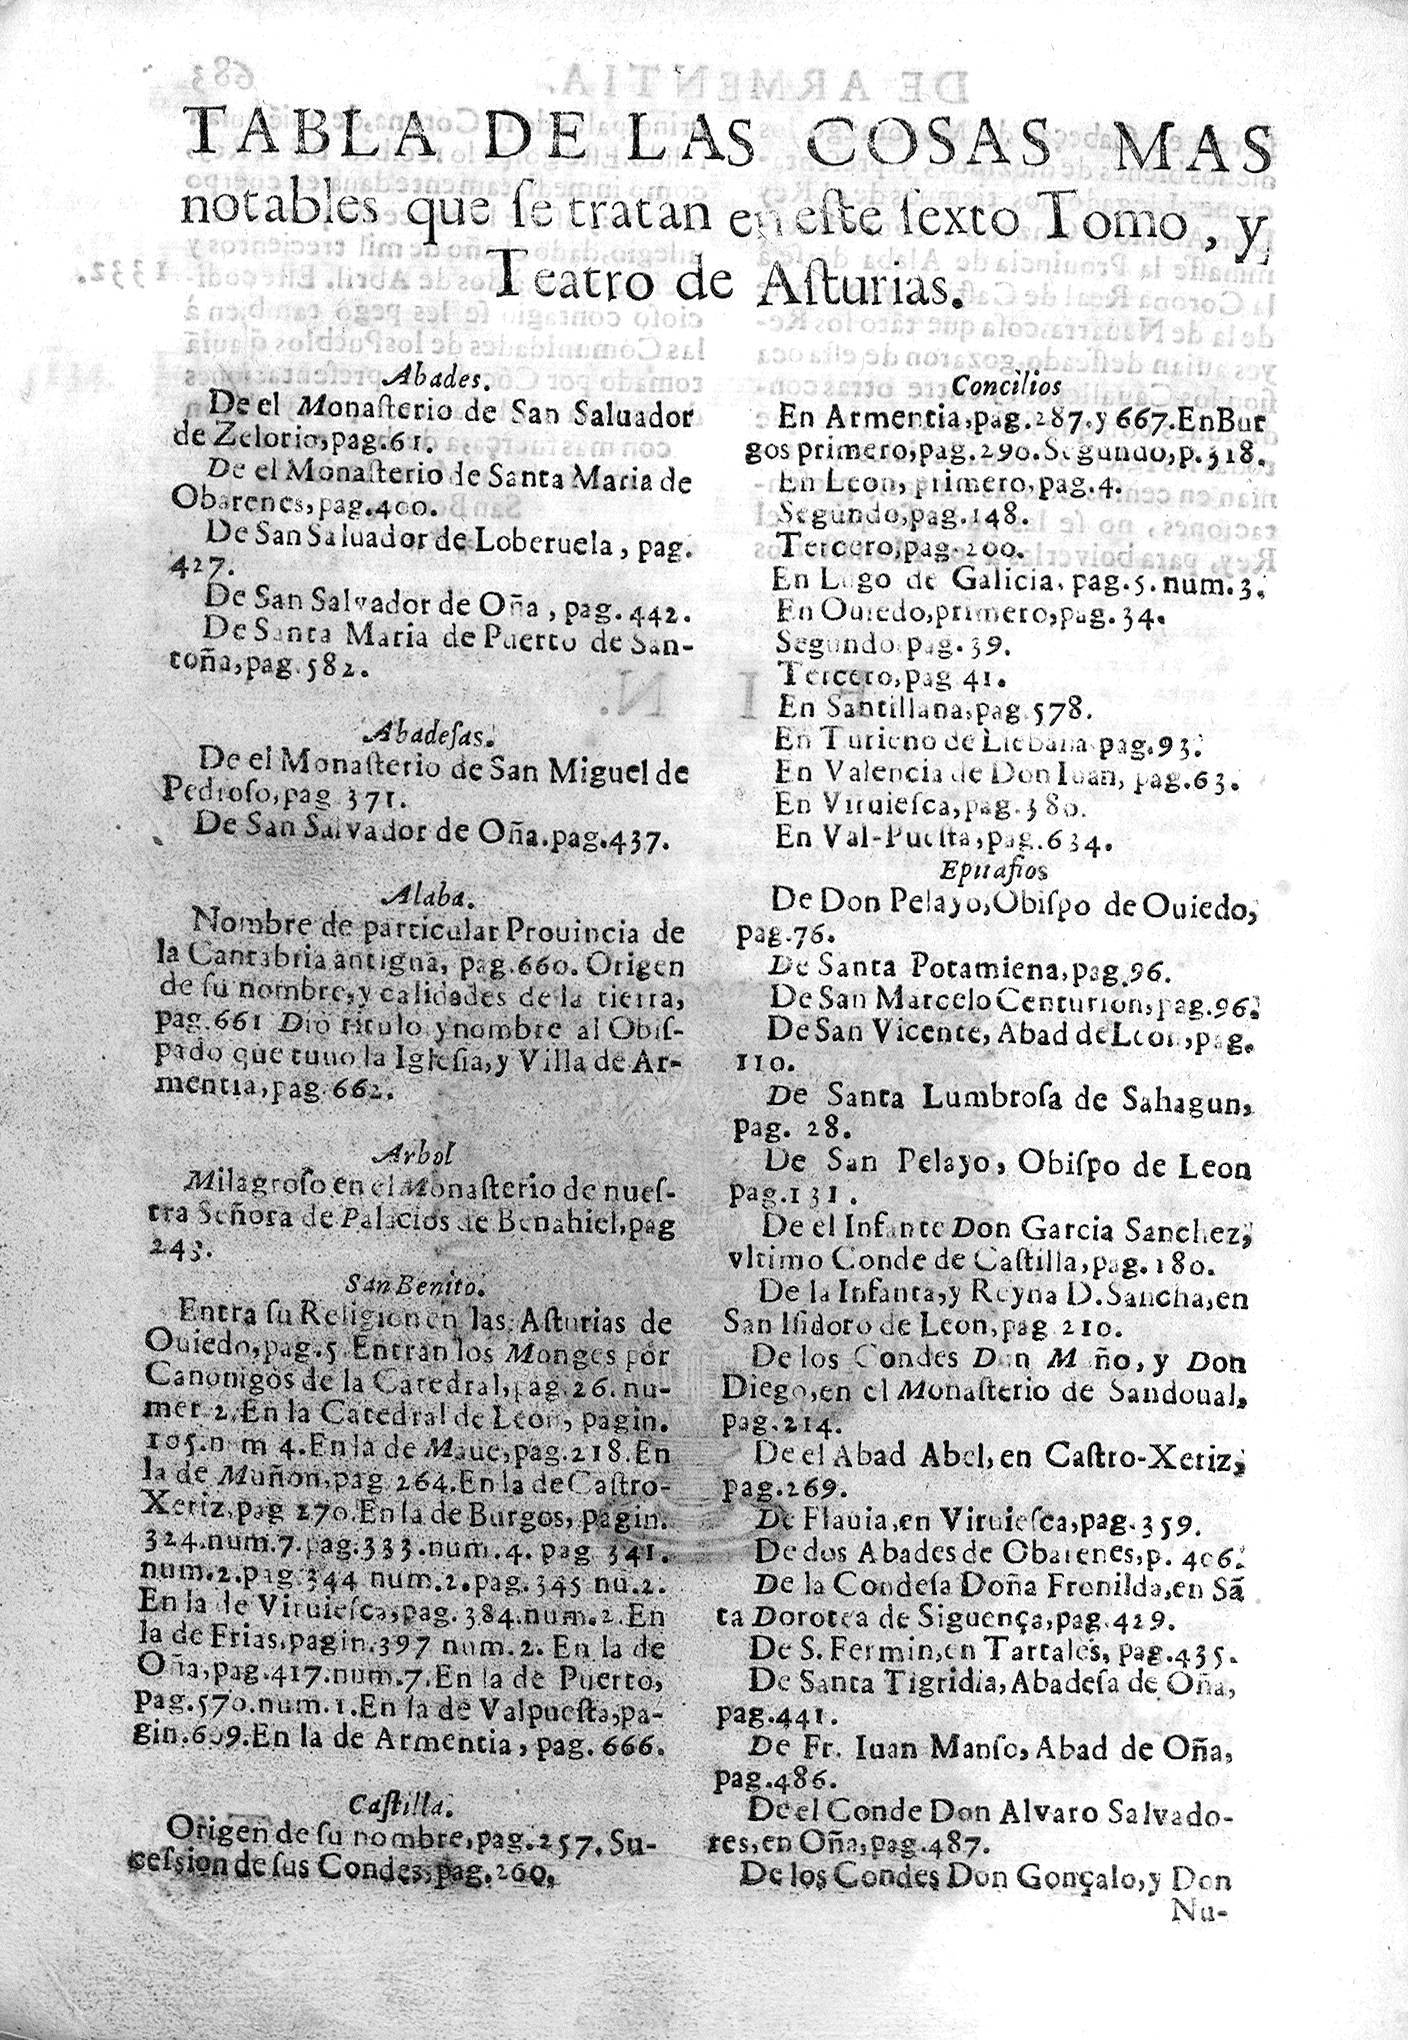 TABLA DE LAS COSAS MAS
notables que ſe tratan en eſte ſexto Tomo, y
Teatro de Aſturias.
Abades.
De el Monaſterio de San Saluador
de Zelorio, pag.61.
De el Monaſterio de Santa Maria de
Obarenes, pag.400.
De San Saluador de Loberuela, pag.
427.
De San Salvador de Oña, pag.442.
De Santa Maria de Puerto de San-
toña, pag.582.
Abadeſas.
De el Monaſterio de San Miguel de
Pedroſo, pag 371.
De San Salvador de Oña. pag.437.
Alaba.
Nombre de particular Prouincia de
la Cantabria antigua, pag.660. Origen
de ſu nombre, y calidades de la tierra,
pag.661 Dio titulo y nombre al Obiſ-
pado que tuuo la Igleſia, y Villa de Ar-
mentia, pag.662.
Arbol
Milagroſo en el Monaſterio de nueſ-
tra Señora de Palacios de Benahiel, pag
243.
San Benito.
Entra ſu Religion en las Aſturias de
Ouiedo, pag.5. Entran los Monges por
Canonigos de la Catedral, pag.26. nu-
mer 2. En la Catedral de Leon, pagin.
105. n m 4. En la de Maue, pag.218. En
la de Muñon, pag 264. En la de Caſtro-
Xeriz, pag 270. En la de Burgos, pagin.
324. num.7. pag.333. num.4. pag 341.
num.2. pag.344 num.2. pag.345 nu.2.
En la de Viruieſca, pag.384. num.2. En
la de Frias, pagin.397 num.2. En la de
Oña, pag.417. num.7. En la de Puerto,
pag.570. num.1. En la de Valpueſta, pa-
gin.609. En la de Armentia, pag.666.
Caſtilla.
Origen de ſu nombre, pag.257. Su-
ceſsion de sus Condes, pag.260.
Concilios
En Armentia, pag.287. y 667. En Bur
gos primero, pag.290. Segundo, p.318.
En Leon, primero, pag.4.
Segundo, pag.148.
Tercero, pag.200.
En Lugo de Galicia, pag.5. num.3.
En Ouiedo, primero, pag.34.
Segundo pag.39.
Tercero, pag 41.
En Santillana, pag 578.
En Turieno de Liebana pag.93.
En Valencia de Don Iuan, pag.63.
En Viruieſca, pag.380.
En Val-Pueſta, pag.634.
Epitafios
De Don Pelayo, Obiſpo de Ouiedo,
pag.76.
De Santa Potamiena, pag.96.
De San Marcelo Centurion, pag.96.
De San Vicente, Abad de Leon, pag.
110.
De Santa Lumbroſa de Sahagun,
pag. 28.
De San Pelayo, Obiſpo de Leon
pag.131.
De el Infante Don Garcia Sanchez,
vltimo Conde de Caſtilla, pag.180.
De la Infanta, y Reyna D. Sancha, en
San Iſidoro de Leon, pag 210.
De los Condes Don M ño, y Don
Diego, en el Monaſterio de Sandoual,
pag.214.
De el Abad Abel, en Caſtro-Xeriz,
pag.269.
De Flauia, en Viruieſca, pag.359.
De dos Abades de Obarenes, p. 406.
De la Condeſa Doña Fronilda, en Sã
ta Dorotea de Siguença, pag.429.
De S. Fermin, en Tartales, pag.435.
De Santa Tigridia, Abadeſa de Oña,
pag.441.
De Fr. Iuan Manſo, Abad de Oña,
pag.486.
De el Conde Don Alvaro Salvado-
res, en Oña, pag.487.
De los Condes Don Gonçalo, y Don
Nu-